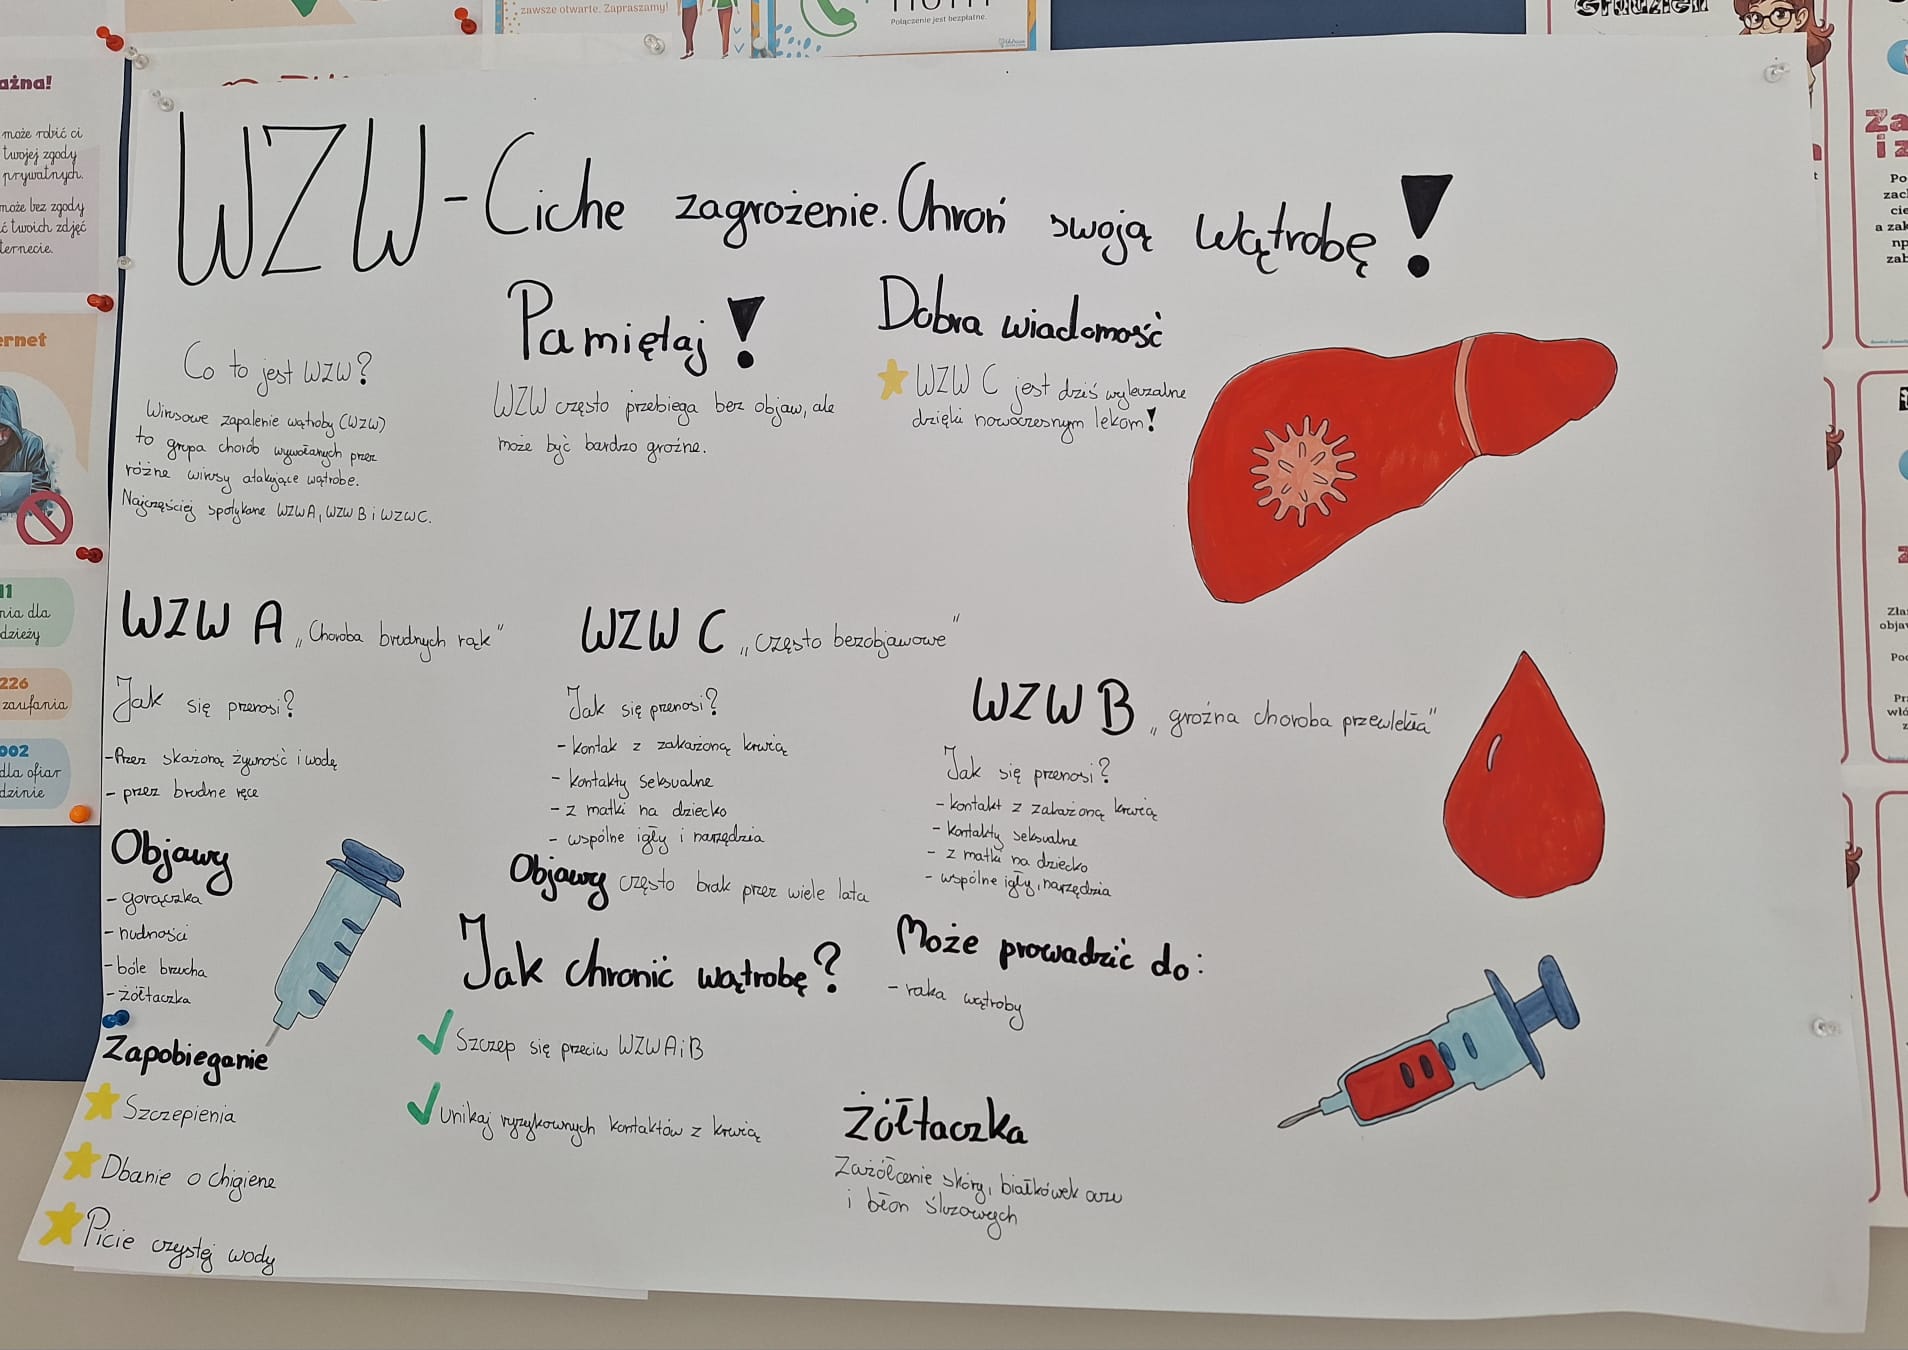 WZW - Ciche zagrożenie. Chroń swoją wątrobę!
Co to jest WZW?
Wirusowe zapalenie wątroby (WZW)
to grupa chorób wywołanych przez
różne wirusy atakujące wątrobe.
Najczęściej spotykane WZWA, WZW B i WZWC.
Pamiętaj!
WZW często przebiega bez objaw, ale
może być bardzo groźne.
Dobra wiadomość
WZW C jest dziś wyleczalne
dzięki nowoczesnym lekom!
WZW A „Choroba brudnych rąk"
Jak się przenosi?
- Przez skażoną żywność i wodę
- przez brudne ręce
Objawy
- gorączka
- nudności
- bóle brzucha
- żółtaczka
Zapobieganie
Szczepienia
Dbanie o chigiene
Picie czystej wody
WZW C „często bezobjawowe"
Jak się przenosi?
- kontak z zakażoną krwią
- kontakty seksualne
- z matki na dziecko
- wspólne igły i narzędzia
Objawy często brak przez wiele lata
Jak chronić wątrobę?
Szczep się przeciw WZWAiB
Unikaj ryzykownych kontaktów z krwią
WZW B „groźna choroba przewlekła"
Jak się przenosi?
- kontakt z zakażoną krwią
- kontakty seksualne
- z matki na dziecko
- wspólne igły, narzędzia
Może prowadzić do:
- raka wątroby
Żółtaczka
Zażółcenie skóry, białkówek oczu
i błon śluzowych
zawsze otwarte. Zapraszamy!
Połączenie jest bezpłatne.
ażna!
może robić ci
twojej zgody
prywatnych.
może bez zgody
ć twoich zdjęć
ternecie.
ernet
11
nia dla
dzieży
226
zaufania
002
dla ofiar
dzinie
Za
i z
Po
zac
cie
a zak
np
zab
Zła
obja
Poc
Prz
włó
z